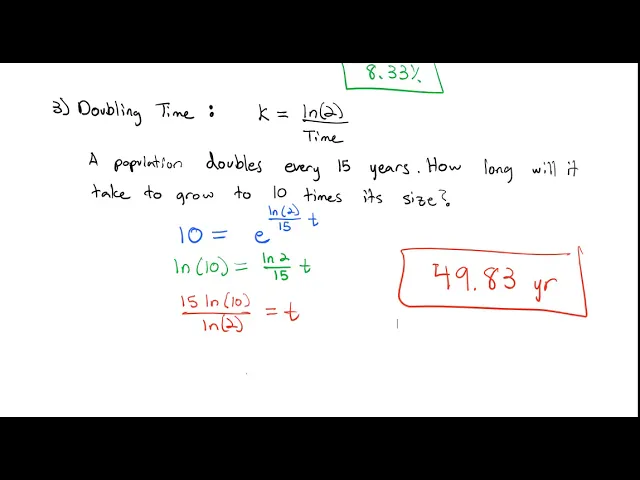 8.33%
3) Doubling Time : K = ln(2)/Time
A population doubles every 15 years. How long will it
take to grow to 10 times its size?
10 = e^(ln(2)/15 t)
ln(10) = ln 2/15 t
15 ln(10)/ln(2) = t
49.83 yr